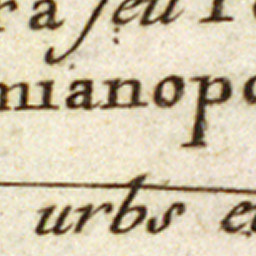 ra ſeu
mianopo
urbs